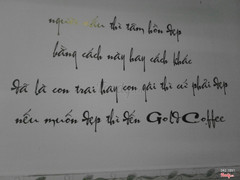 người xấu thì tâm hồn đẹp
bằng cách này hay cách khác
đã là con trai hay con gái thì cứ phải đẹp
nếu muốn đẹp thì đến Gold Coffee